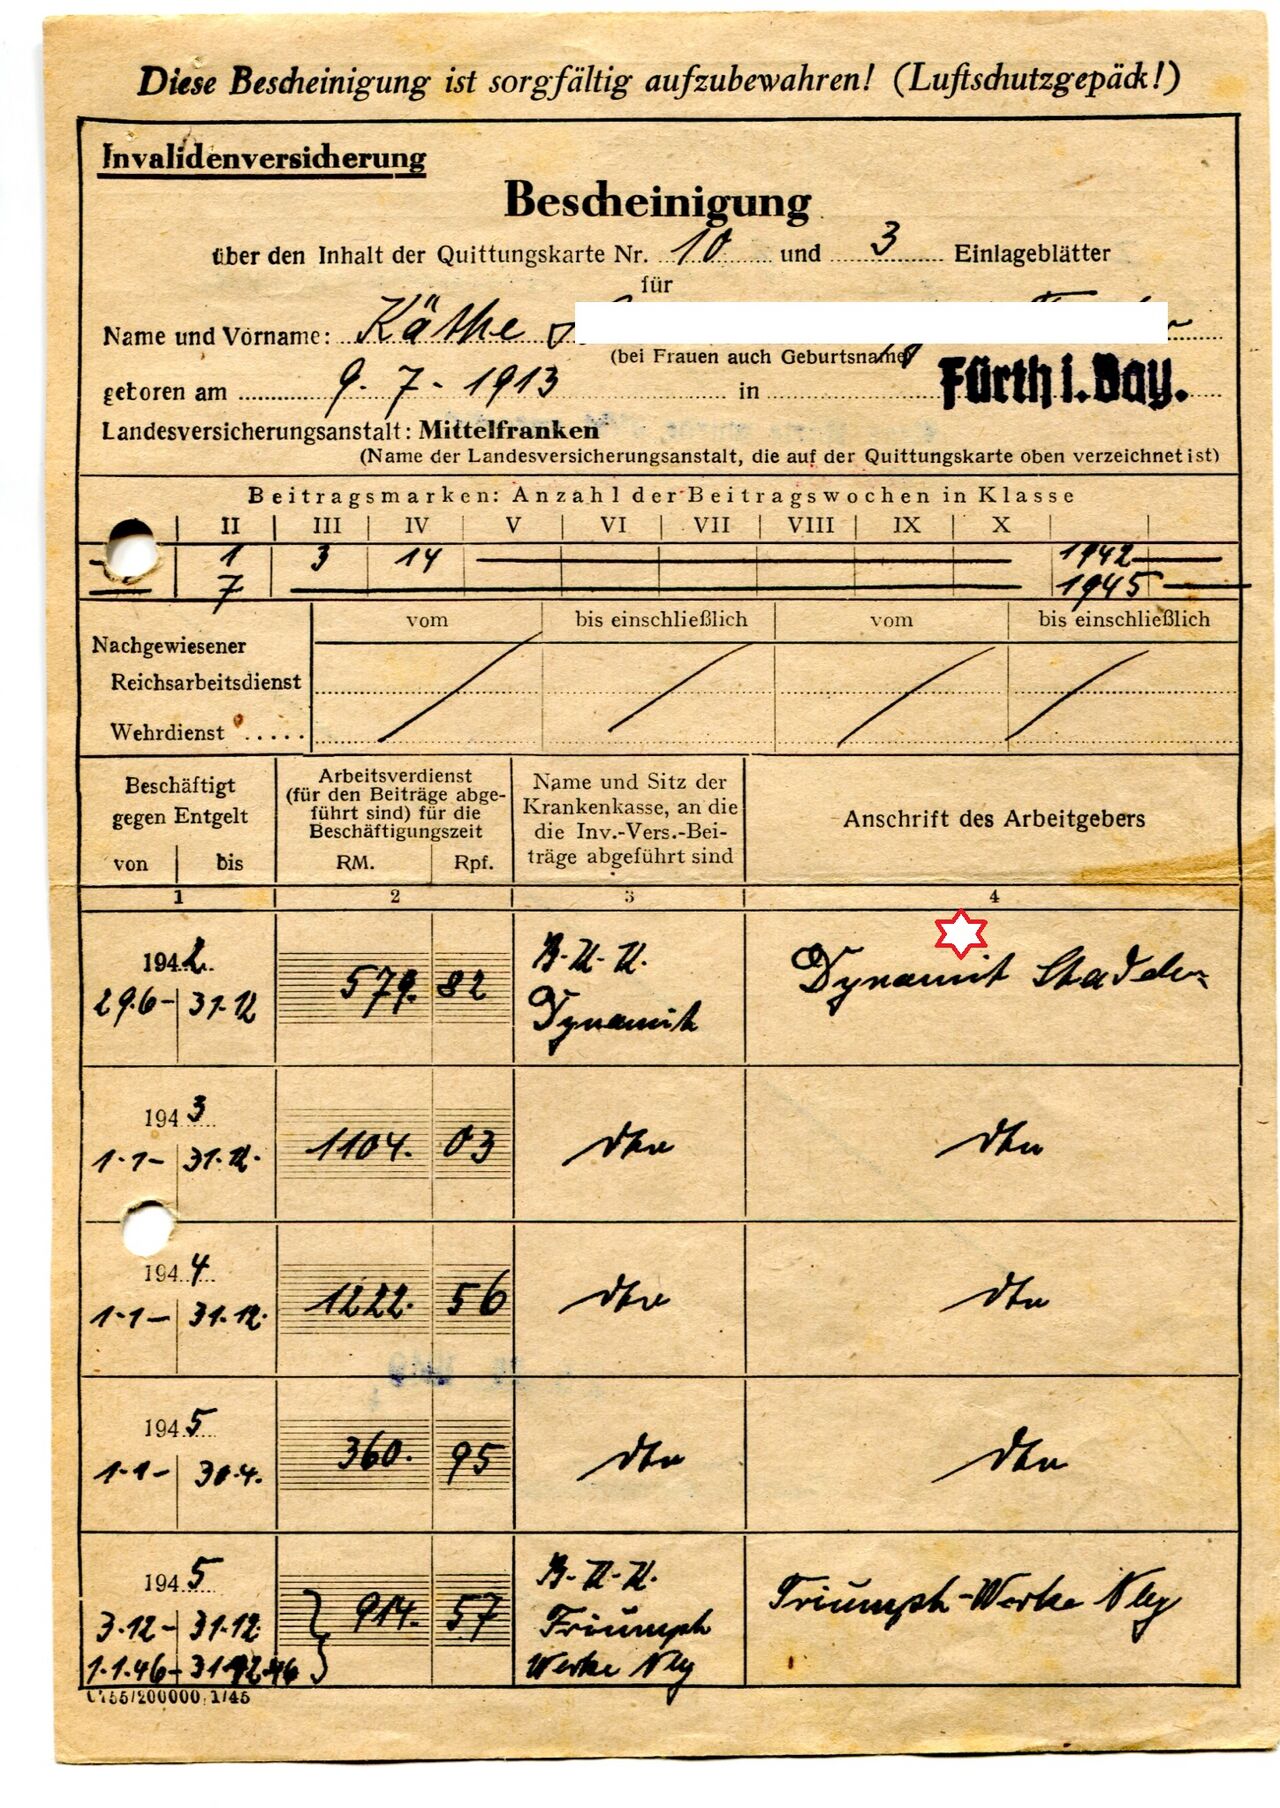 Diese Bescheinigung ist sorgfältig aufzubewahren! (Luftschutzgepäck!)
Invalidenversicherung
Bescheinigung
über den Inhalt der Quittungskarte Nr. 10 und 3 Einlageblätter
für
Name und Vorname: Käthe
(bei Frauen auch Geburtsname)
geboren am 9. 7. - 1913 in Fürth i. Bay.
Landesversicherungsanstalt: Mittelfranken
(Name der Landesversicherungsanstalt, die auf der Quittungskarte oben verzeichnet ist)
Beitragsmarken: Anzahl der Beitragswochen in Klasse
II III IV V VI VII VIII IX X
1 3 14 1942
7 1945
vom bis einschließlich vom bis einschließlich
Nachgewiesener
Reichsarbeitsdienst
Wehrdienst .....
Beschäftigt gegen Entgelt
von bis
Arbeitsverdienst
(für den Beiträge abge-
führt sind) für die
Beschäftigungszeit
RM. Rpf.
Name und Sitz der
Krankenkasse, an die
die Inv.-Vers.-Bei-
träge abgeführt sind
Anschrift des Arbeitgebers
1 2 3 4
1942
29.6 - 31.12 579. 82 B.K.K. Dynamit Dynamit Stadeln
1943
1.1 - 31.12. 1104. 03 dto dto
1944
1.1 - 31.12. 1222. 56 dto dto
1945
1.1 - 30.4. 360. 95 dto dto
1945
3.12 - 31.12. 914. 57 B.K.K. Triumph-Werke Nbg
1.1.46 - 31.12.46 Triumph Werke Nbg
C155/200000 1/45